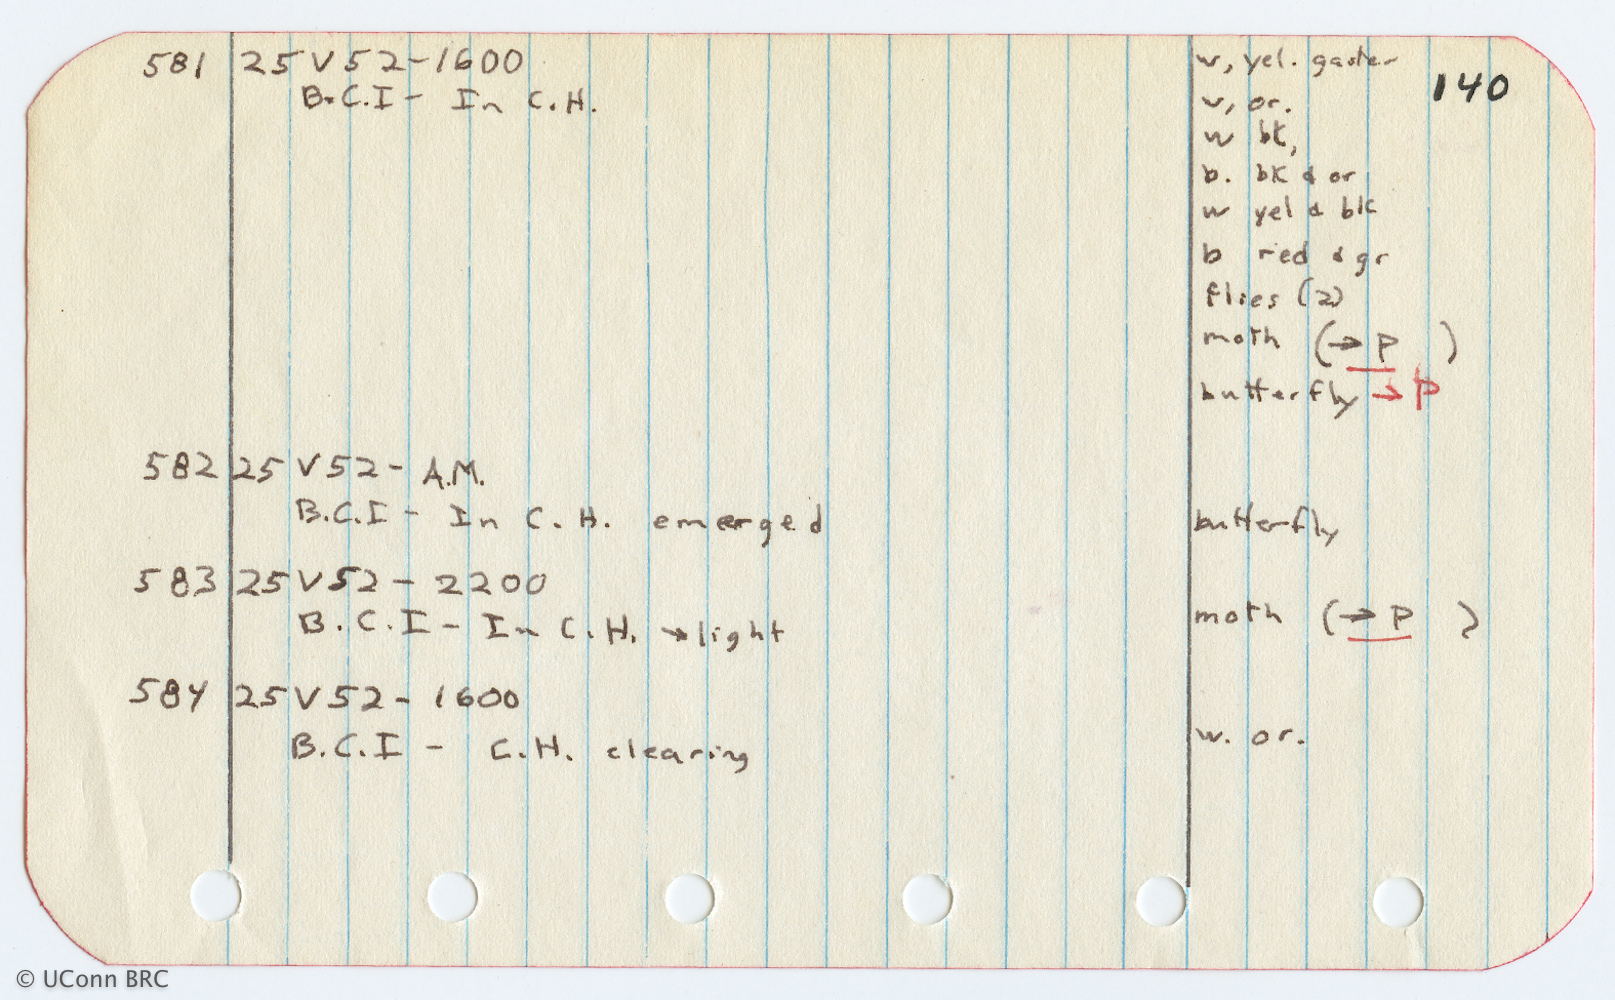 140
581 25 V 52-1600
B.C.I - In C.H.
w, yel. gaster
w, or.
w bk,
b. bk & or
w yel & blk
b red & gr
flies (2)
moth (→ P )
butterfly → P
582 25 V 52 - A.M.
B.C.I - In C.H. emerged
butterfly
583 25 V 52 - 2200
B.C.I - In C.H. → light
moth (→ P )
584 25 V 52 - 1600
B.C.I - C.H. clearing
w. or.
© UConn BRC